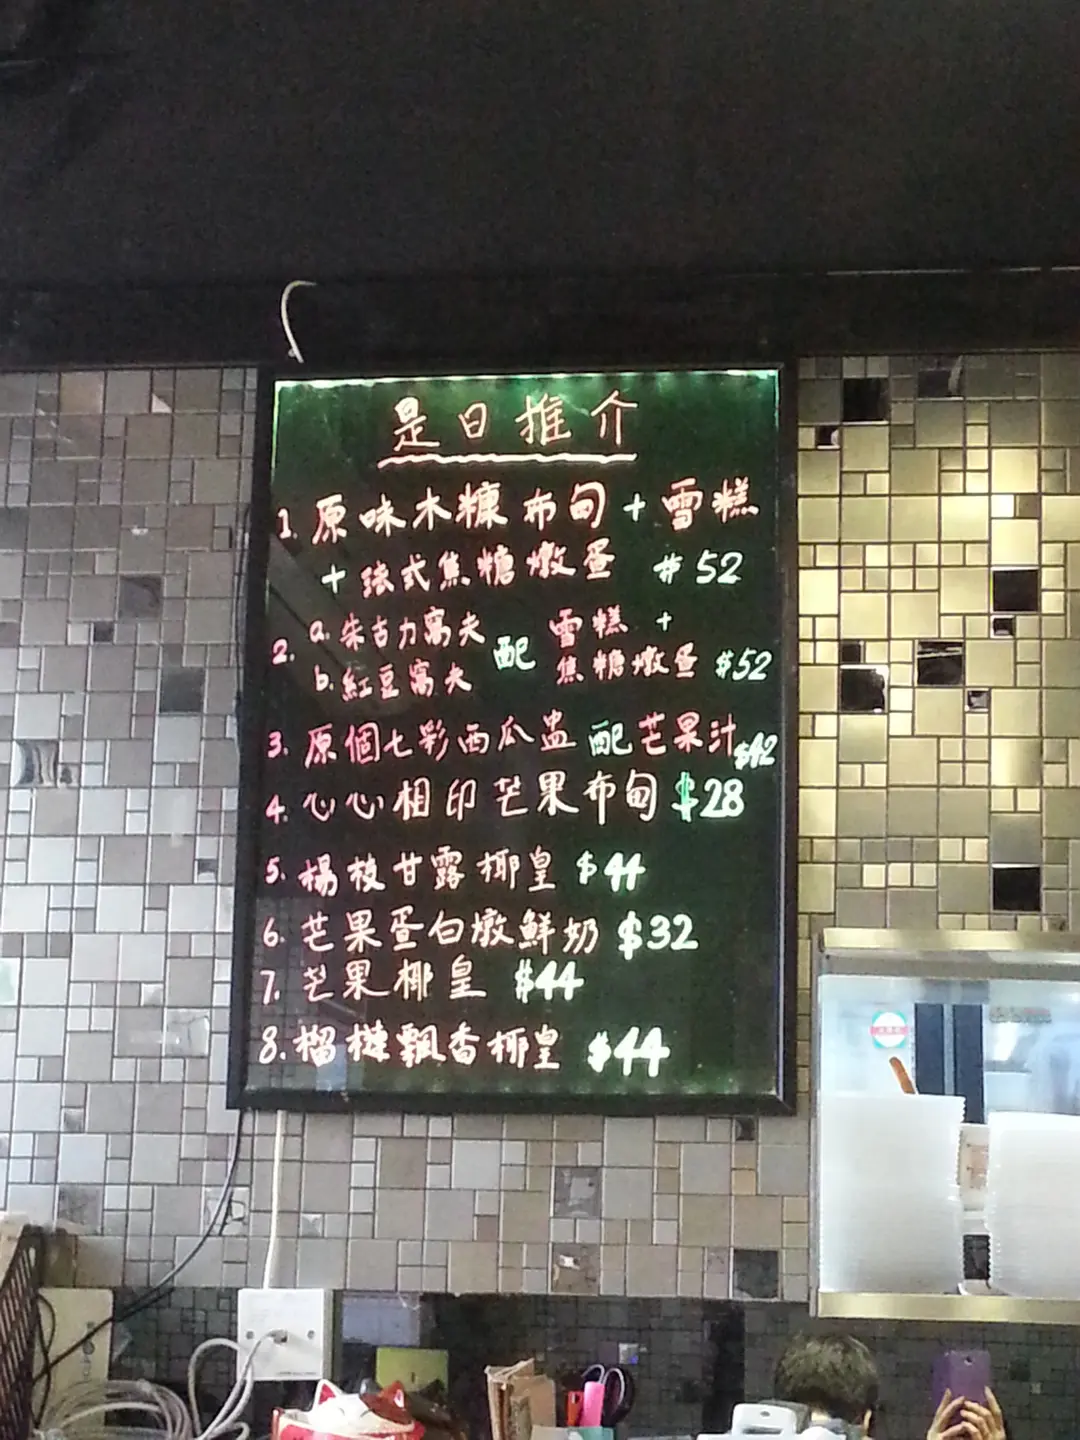 是日推介
1. 原味木糠布甸 + 雪糕
+ 法式焦糖燉蛋 $52
2. a. 朱古力窩夫 配 雪糕 +
b. 紅豆窩夫 焦糖燉蛋 $52
3. 原個七彩西瓜盅 配芒果汁 $42
4. 心心相印芒果布甸 $28
5. 楊枝甘露椰皇 $44
6. 芒果蛋白燉鮮奶 $32
7. 芒果椰皇 $44
8. 榴槤飄香椰皇 $44